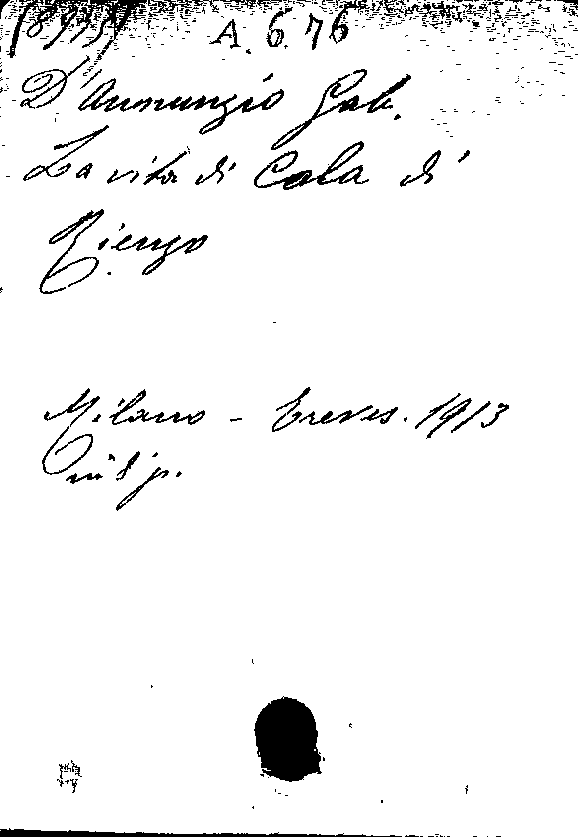 A.6.76
D'Annunzio Gab.
La vita di Cola di
Rienzo
Milano - Treves. 1913
in 8 p.